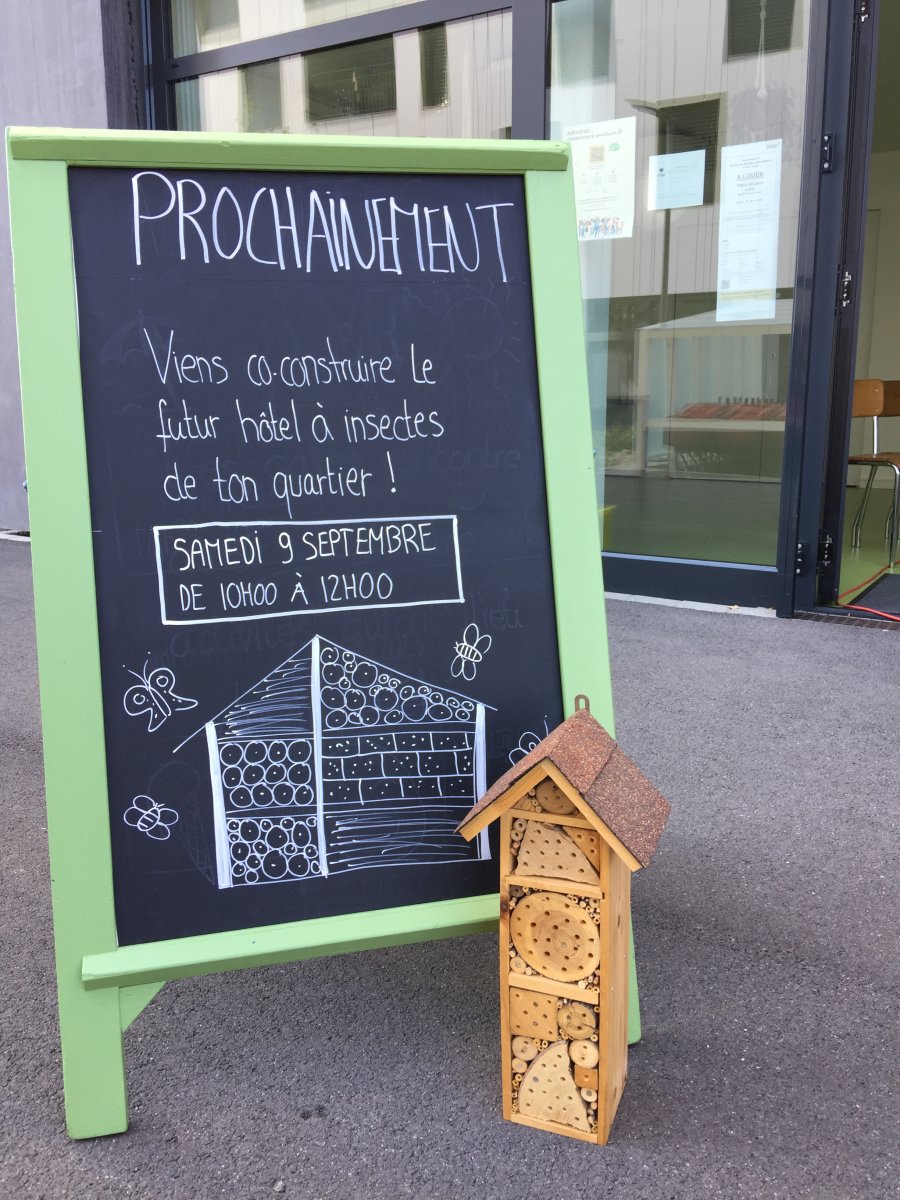 PROCHAINEMENT
Viens co-construire le
futur hôtel à insectes
de ton quartier !
SAMEDI 9 SEPTEMBRE
DE 10H00 À 12H00
NOUVEAU :
A LOUER